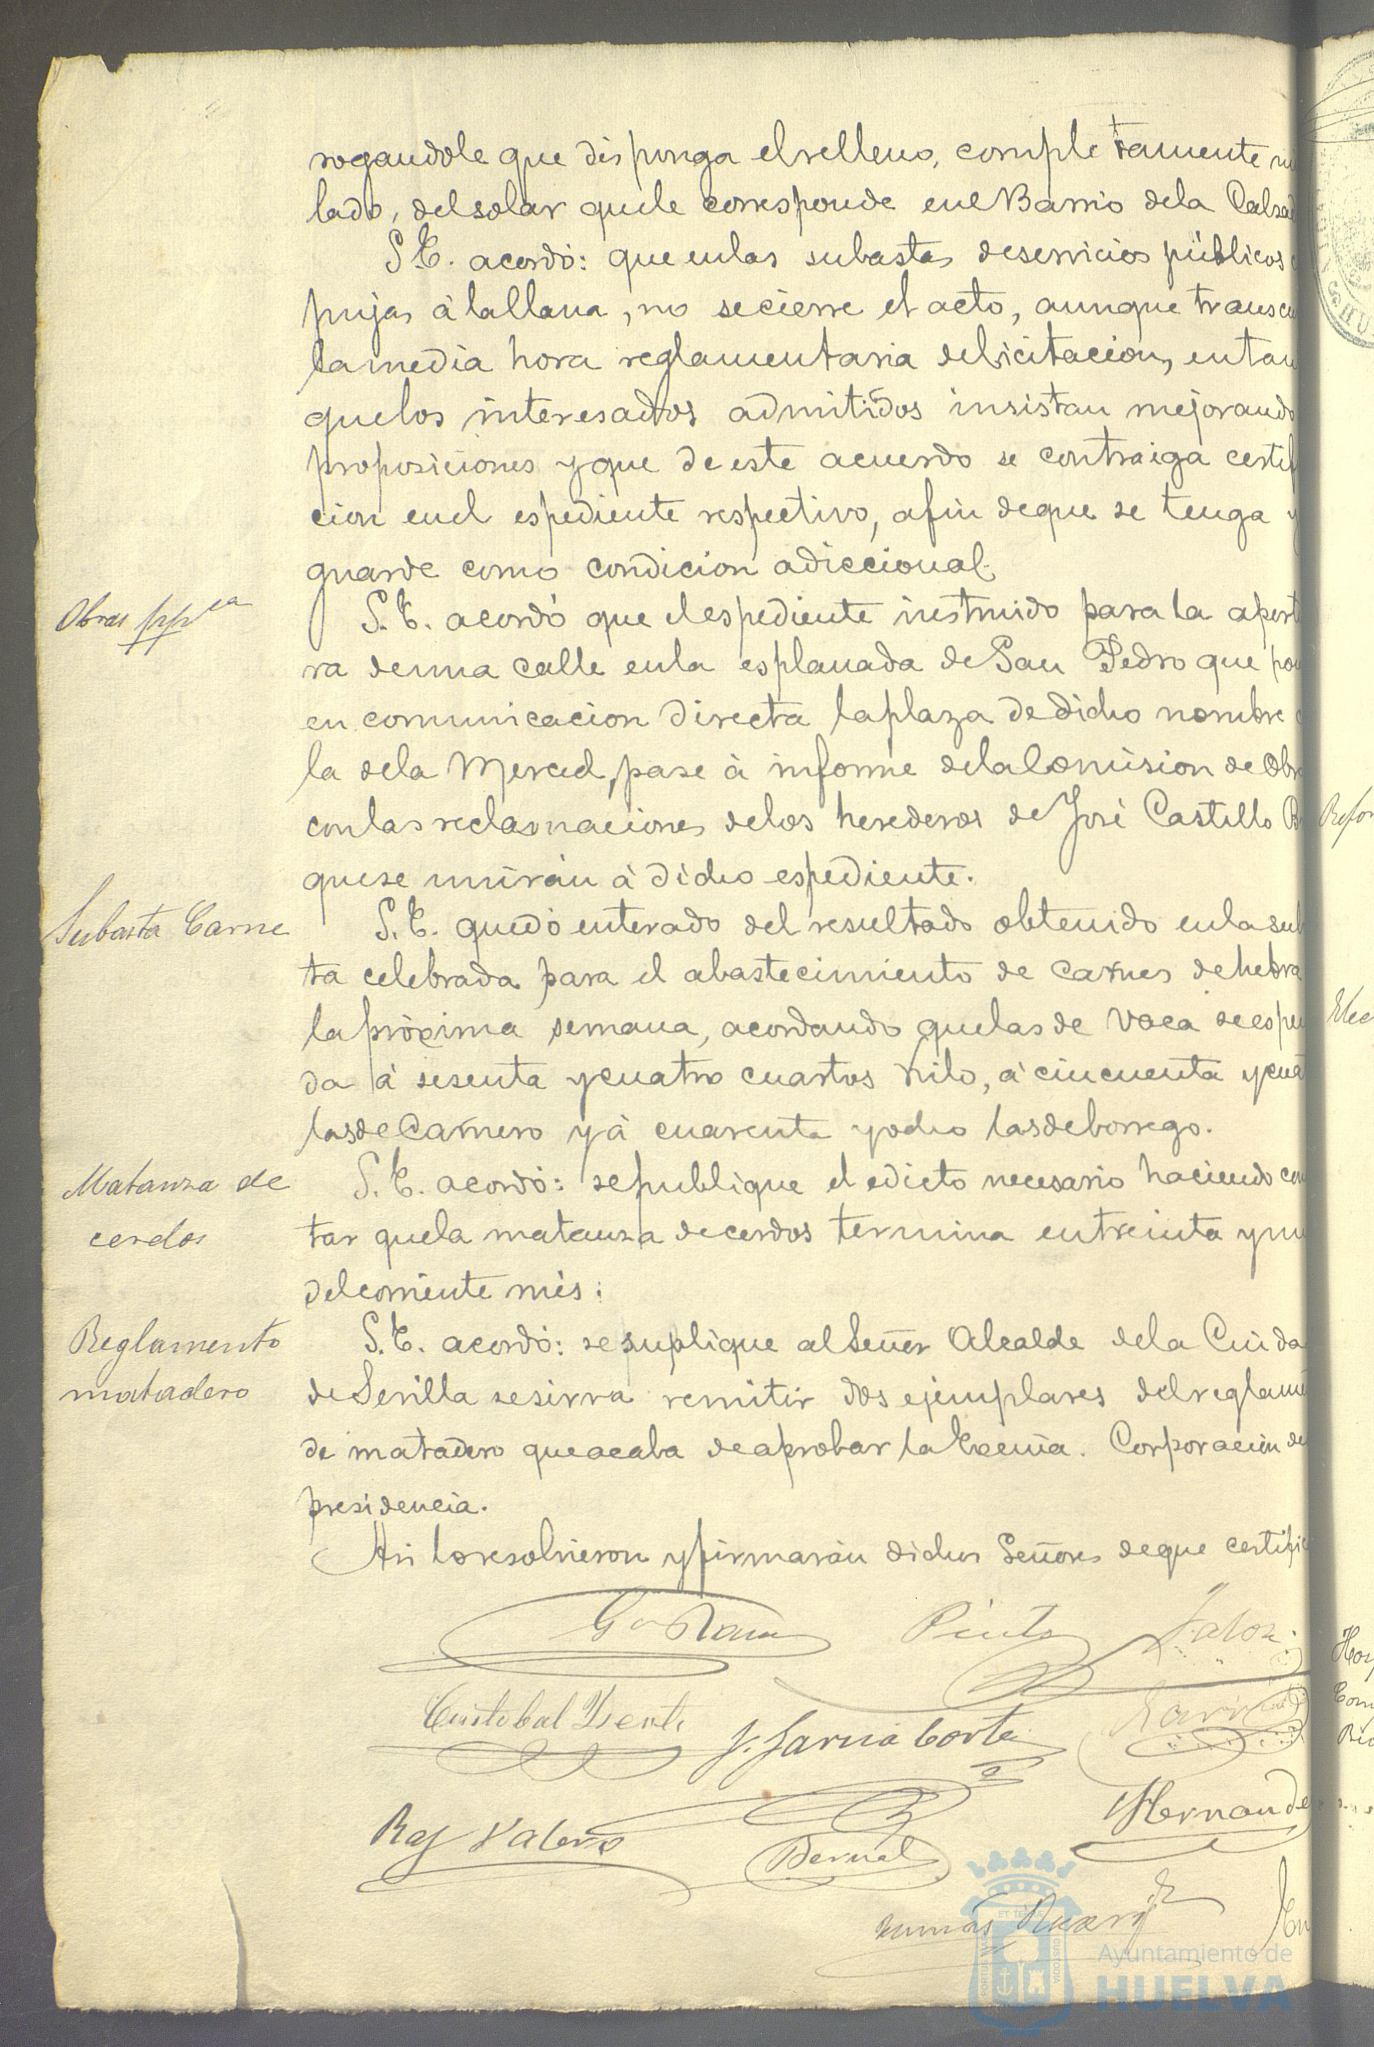 rogandole que disponga el relleno, completamente
lado, del solar que le corresponde en el Barrio de la Calzad
S.E. acordó: que en las subastas de servicios públicos
pujas à la llana, no se cierre el acto, aunque transcu
la media hora reglamentaria de licitacion, en tan
que los interesados admitidos insistan mejorando
proposiciones y que de este acuerdo se contraiga certif
cion en el espediente respectivo, a fin de que se tenga y
guarde como condicion adiccional.
Obras ppca
S.E. acordó que el espediente instruido para la apert
ra de una calle en la esplanada de San Pedro que pon
en comunicacion directa la plaza de dicho nombre c
la de la Merced, pase à informe de la Comision de Obr
con las reclamaciones de los herederos de José Castillo
que se unirán à dicho espediente.
Subasta Carne
S.E. quedó enterado del resultado obtenido en la sub
ta celebrada para el abastecimiento de carnes de hebra
la próxima semana, acordando que las de vaca se espen
da à sesenta y cuatro cuartos kilo, à cincuenta y cuat
las de Carnero y à cuarenta y ocho las de borrego.
Matanza de
cerdos
S.E. acordó: se publique el edicto necesario haciendo con
tar que la matanza de cerdos termina en treinta y un
del corriente més:
Reglamento
matadero
S.E. acordó: se suplique al Señor Alcalde de la Ciuda
de Sevilla se sirva remitir dos ejemplares del reglame
de matadero que acaba de aprobar la Excma. Corporación de
presidencia.
Asi lo resolvieron y firmarán dichos Señores de que certific
Pinto
Cristobal
J. Garcia Corte
Hernande
Valero
Bernal
Refor
Elec
Hoy
Com
ET TERRAE
Ayuntamiento de
HUELVA